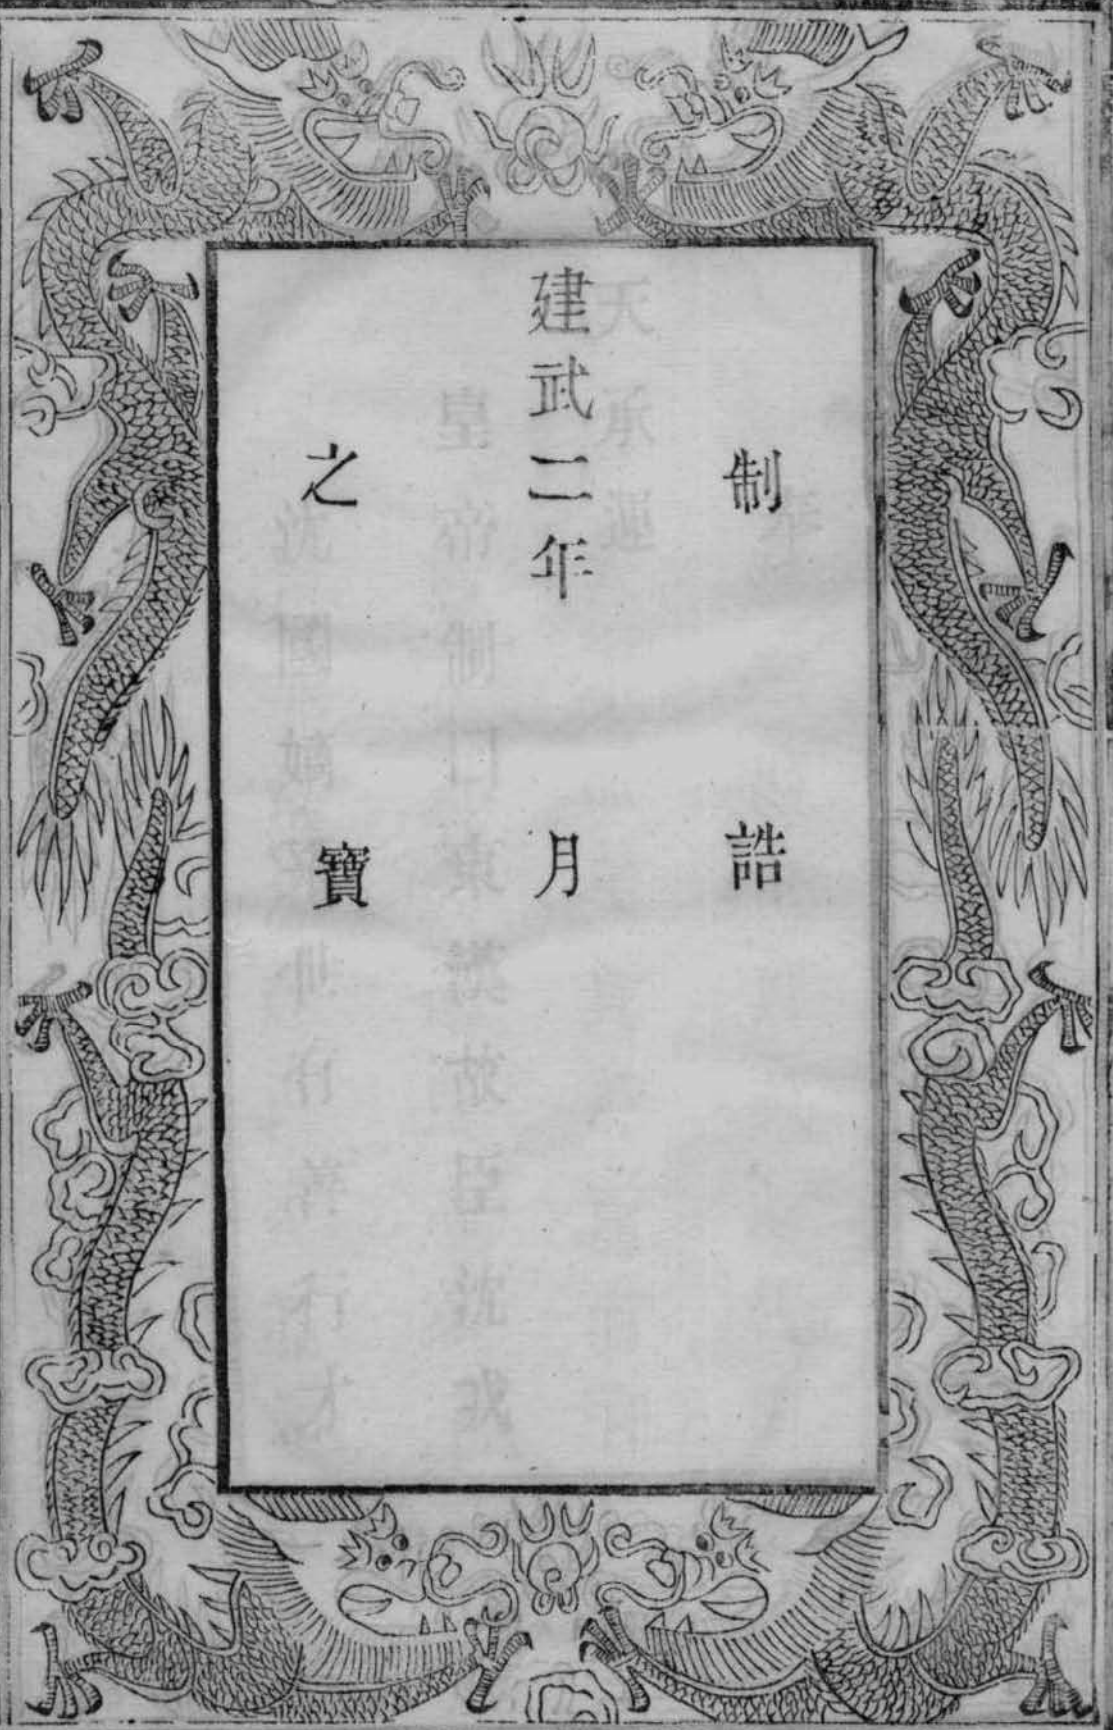 制誥
建武二年 月
之寶